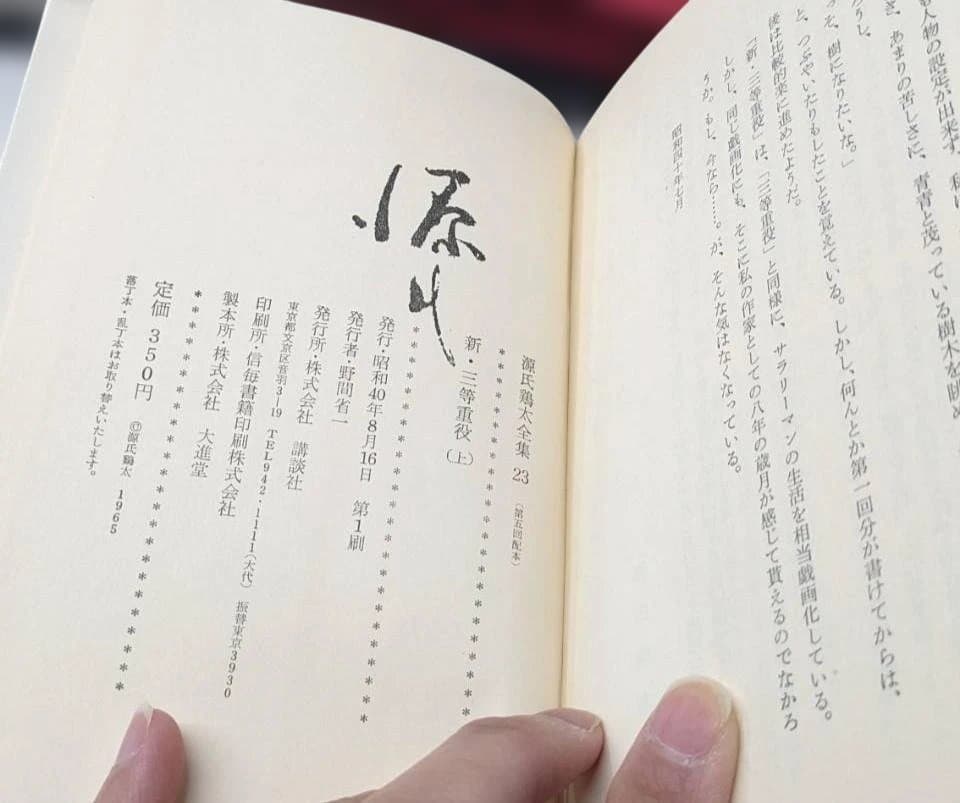 人物の設定が出来ず、
さ、あまりの苦しさに、青青と茂っている樹木を眺め
うし、
っそ、樹になりたいな。」
と、つぶやいたりもしたことを覚えている。しかし、何んとか第一回分が書けてからは、
後は比較的楽に進めたようだ。
「新・三等重役」は、「三等重役」と同様に、サラリーマンの生活を相当戯画化している。
しかし、同じ戯画化にも、そこに私の作家としての八年の歳月が感じて貰えるのでなかろ
うか。もし、今なら……。が、そんな気はなくなっている。
昭和四十年七月
源氏鶏太全集 23 (第五回配本)
＊＊＊＊＊＊＊＊＊＊＊＊＊＊＊＊＊＊
新・三等重役(上)
＊＊＊＊＊＊＊＊＊＊＊＊＊＊＊＊＊＊
発行・昭和40年8月16日 第1刷
発行者・野間省一
発行所・株式会社 講談社
東京都文京区音羽3-19 TEL942・1111(大代) 振替東京3930
印刷所・信毎書籍印刷株式会社
製本所・株式会社 大進堂
＊＊＊＊＊＊＊＊＊＊＊＊＊＊＊＊＊＊
定価 350円 ©源氏鶏太 1965
落丁本・乱丁本はお取り替えいたします。
源氏